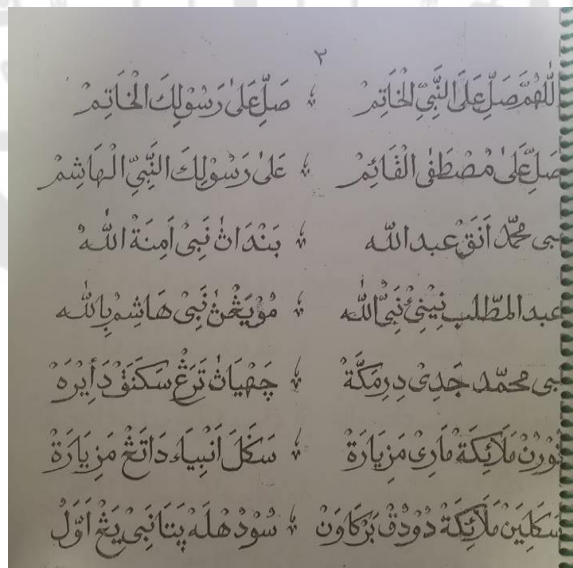 ٢
اللّٰهُمَّ صَلِّ عَلَى النَّبِيِّ الْخَاتِمْ ؛ صَلِّ عَلىٰ رَسُوْلِكَ الْخَاتِمْ
صَلِّ عَلىٰ مُصْطَفَى الْقَائِمْ ؛ عَلىٰ رَسُوْلِكَ النَّبِيِّ الْهَاشِمْ
نبى محمّد اَنَقْ عبد الله ؛ بَنْدَاڽْ نَبِىْ اٰمِنَةْ اللّٰه
عبد المطّلب نِيْنِئْ نَبِيُّ اللّٰه ؛ مُوْيَڠْڽْ نَبِىْ هَاشِمْ بِاللّٰه
نبى محمّد جَدِىْ دِرِمَكَّةْ ؛ چَهْيَاڽْ تَرَڠْ سَكَنَڤْ دَأَيْرَهْ
تُوْرُنْ مَلَائِكَةْ مَارِىْ مَزِيَارَةْ ؛ سَكَلَ اَنْبِيَاء دَاتَڠْ مَزِيَارَةْ
سَكَلِيَنْ مَلَائِكَةْ دُوْدُقْ بَرْكَاوَنْ ؛ سُوْدَهْلَهْ ڽَتَا نَبِىْ يَڠْ اَوَّلْ